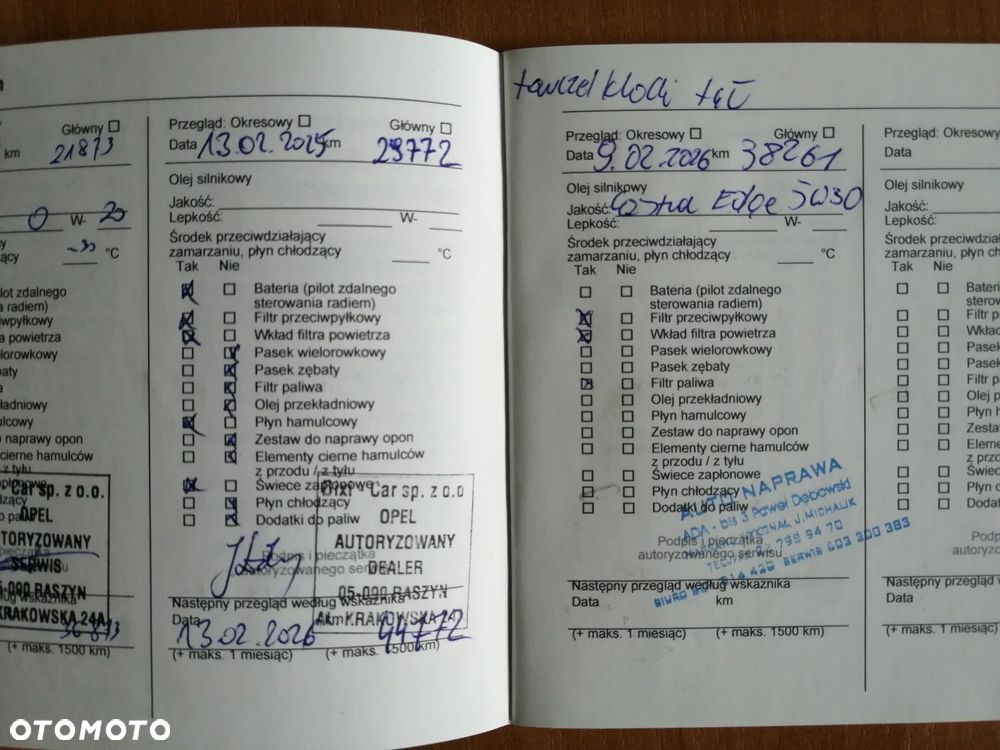 Główny
km 21873
0 W- 20
-30 °C
pilot zdalnego
a radiem)
ciwpyłkowy
a powietrza
elorowkowy
baty
a
kładniowy
ulcowy
do naprawy opon
ów hamulców
z tyłu
Car sp. z o.o.
OPEL
AUTORYZOWANY
SERWIS
05-090 RASZYN
KRAKOWSKA 24A
36873
(+ maks. 1500 km)
Przegląd: Okresowy Główny
Data 13.02.2025 km 29772
Olej silnikowy
Jakość:
Lepkość: W-
Środek przeciwdziałający
zamarzaniu, płyn chłodzący °C
Tak Nie
Bateria (pilot zdalnego
sterowania radiem)
Filtr przeciwpyłkowy
Wkład filtra powietrza
Pasek wielorowkowy
Pasek zębaty
Filtr paliwa
Olej przekładniowy
Płyn hamulcowy
Zestaw do naprawy opon
Elementy cierne hamulców
z przodu / z tyłu
Świece zapłonowe
Płyn chłodzący
Dodatki do paliw
Dixi - Car sp. z o.o
OPEL
AUTORYZOWANY
DEALER
05-090 RASZYN
Al. KRAKOWSKA 24
Podpis i pieczątka
autoryzowanego serwisu
Następny przegląd według wskaźnika
Data 13.02.2026 km 44772
(+ maks. 1 miesiąc) (+ maks. 1500 km)
tarcze i klocki tył
Przegląd: Okresowy Główny
Data 9.02.2026 km 38261
Olej silnikowy
Jakość: Castrol Edge 5W30
Lepkość: W-
Środek przeciwdziałający
zamarzaniu, płyn chłodzący °C
Tak Nie
Bateria (pilot zdalnego
sterowania radiem)
Filtr przeciwpyłkowy
Wkład filtra powietrza
Pasek wielorowkowy
Pasek zębaty
Filtr paliwa
Olej przekładniowy
Płyn hamulcowy
Zestaw do naprawy opon
Elementy cierne hamulców
z przodu / z tyłu
Świece zapłonowe
Płyn chłodzący
Dodatki do paliw
AUTO NAPRAWA
ADA - bis 3 Paweł Dębowski
J. MICHALIK
799 94 70
SERWIS 603 300 383
Podpis i pieczątka
autoryzowanego serwisu
Następny przegląd według wskaźnika
Data km
(+ maks. 1 miesiąc) (+ maks. 1500 km)
Przegląd: Okresowy
Data
Olej silnikowy
Jakość:
Lepkość:
Środek przeciwdziałający
zamarzaniu, płyn chłodzący
Tak Nie
Bateri
sterow
Filtr p
Wkład
Pasek
Pasek
Filtr p
Olej p
Płyn h
Zesta
Eleme
z prz
Świec
Płyn c
Dodat
Podpis
autoryzowa
Następny przegląd wed
Data
(+ maks. 1 miesiąc)
OTOMOTO